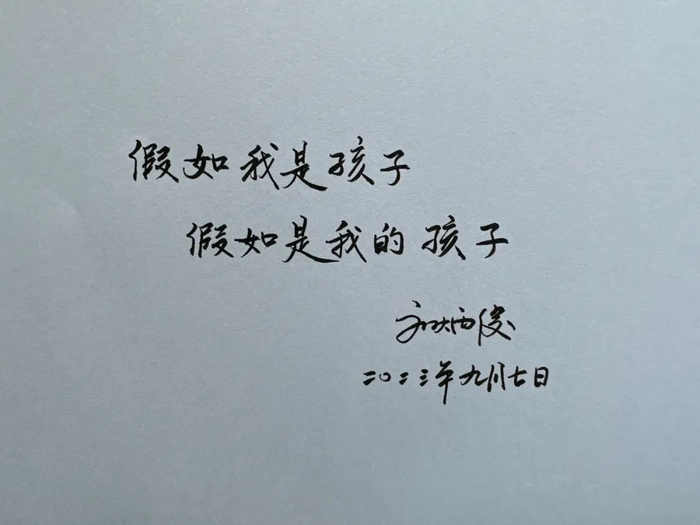 假如我是孩子
假如是我的孩子
二〇二三年九月七日